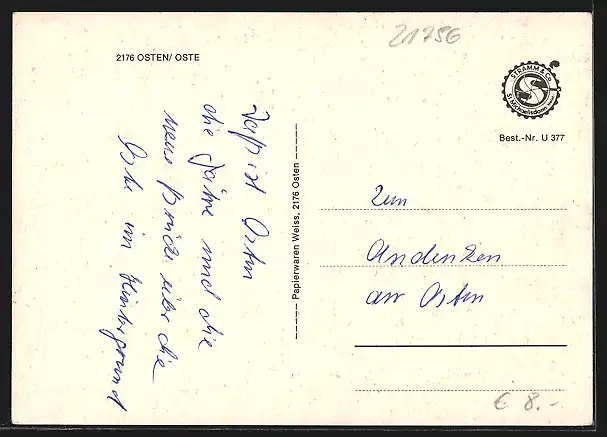 21756
2176 OSTEN/ OSTE
STRAMM & Co.
St. Michaelisdonn
Best.-Nr. U 377
Das ist Osten
die Fähre und die
neue Brücke über die
Oste im Hintergrund
Papierwaren Weiss, 2176 Osten
Zum
Andenken
an Osten
€ 8.-